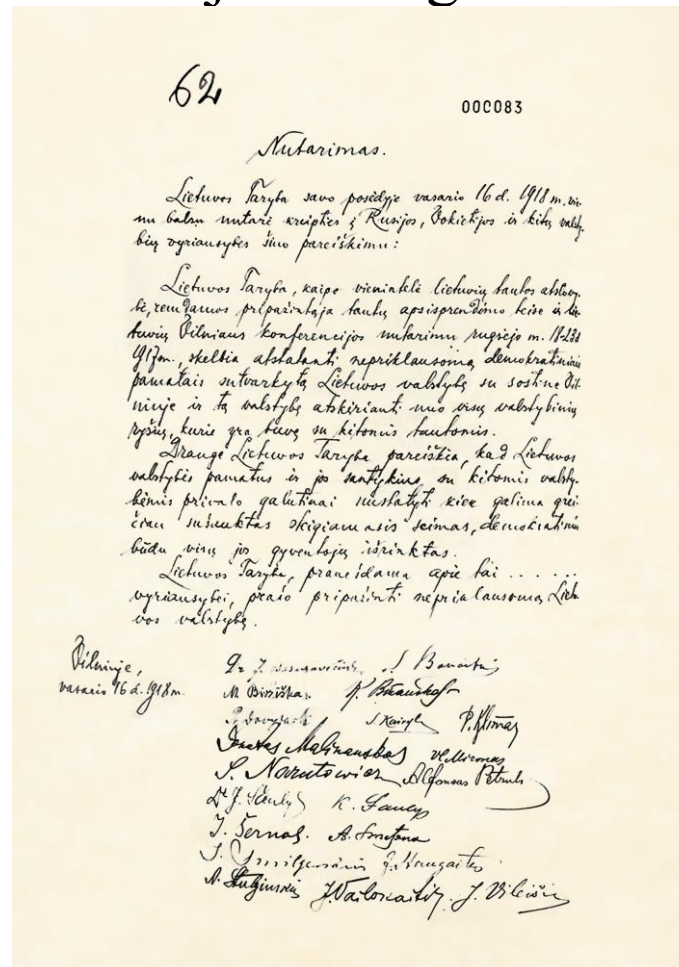 62
000083
Nutarimas.
Lietuvos Taryba savo posėdyje vasario 16 d. 1918 m. vie-
nu balsu nutarė kreipties į Rusijos, Vokietijos ir kitų valsty-
bių vyriausybes šiuo pareiškimu:
Lietuvos Taryba, kaipo vienintelė lietuvių tautos atstovy-
bė, remdamos pripažintąja tautų apsisprendimo teise ir lie-
tuvių Vilniaus konferencijos nutarimu rugsėjo m. 18-23 d
1917 m., skelbia atstatanti nepriklausomą demokratiniais
pamatais sutvarkytą Lietuvos valstybę su sostine Vil-
niuje ir tą valstybę atskirianti nuo visų valstybinių
ryšių, kurie yra buvę su kitomis tautomis.
Drauge Lietuvos Taryba pareiškia, kad Lietuvos
valstybės pamatus ir jos santykius su kitomis valsty-
bėmis privalo galutinai nustatyti kiek galima grei-
čiau sušauktas steigiamasis seimas, demokratiniu
būdu visų jos gyventojų išrinktas.
Lietuvos Taryba, pranešdama apie tai . . . . . .
vyriausybei, prašo pripažinti nepriklausomą Lietu-
vos valstybę.
Vilniuje,
vasario 16 d. 1918 m.
Dr. J. Basanavičius S. Banaitis
M. Biržiška K. Bizauskas
P. Dovydaitis S. Kairys P. Klimas
Donatas Malinauskas Vl. Mironas
S. Narutowicz Alfonsas Petrulis
Dr J. Šaulys K. Šaulys
J. Šernas A. Smetona
J. Smilgevičius J. Staugaitis
A. Stulginskis J. Vailokaitis J. Vileišis